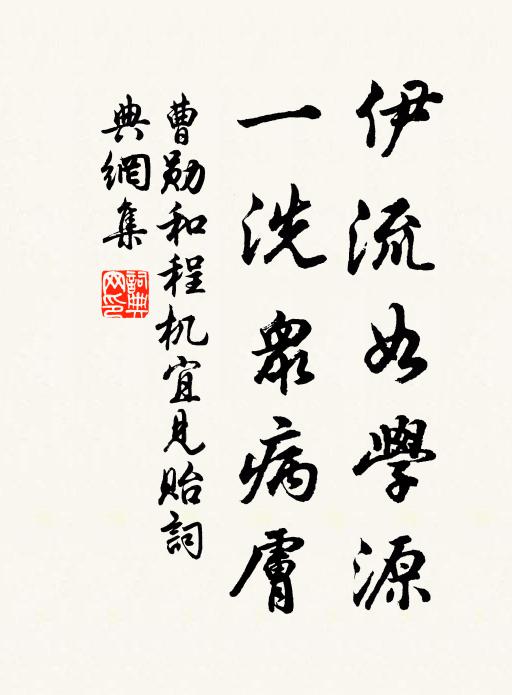 伊流如學源
一洗衆病膚
曹勛和程机宜見貽詞
典網集
詞典网印